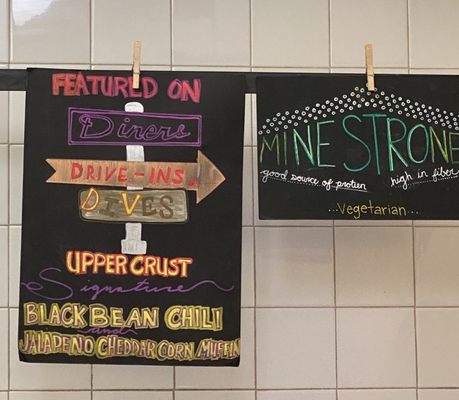 FEATURED ON
Diners
DRIVE-INS
DIVES
UPPER CRUST
Signature
BLACK BEAN CHILI
and
JALAPENO CHEDDAR CORN MUFFIN
MINESTRONE
good source of protein
high in fiber
...Vegetarian...